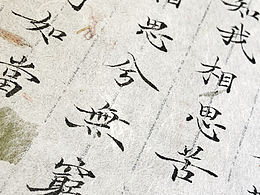 知我相思苦
相思兮無窮
如當